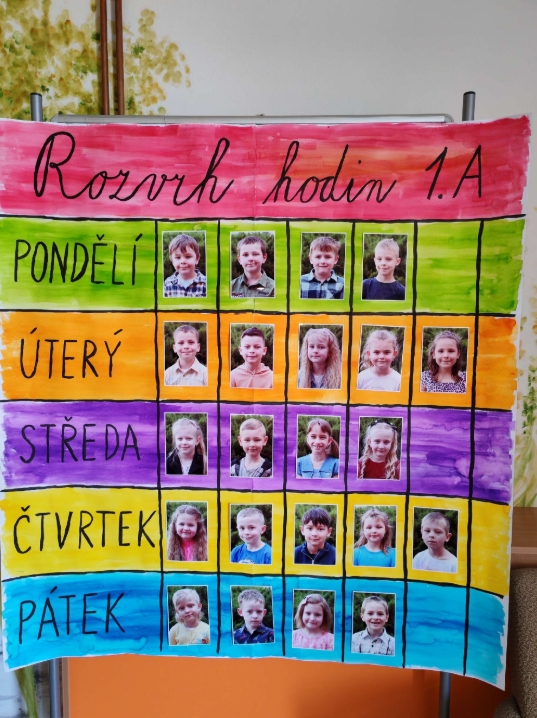 Rozvrh hodin 1.A
PONDĚLÍ
ÚTERÝ
STŘEDA
ČTVRTEK
PÁTEK